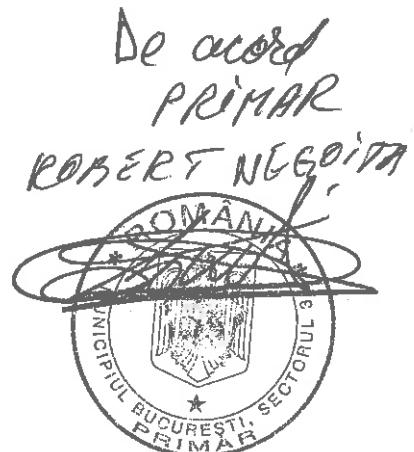 De acord
PRIMAR
ROBERT NEGOIȚA
ROMÂNIA
MUNICIPIUL BUCUREȘTI, SECTORUL 3
PRIMAR